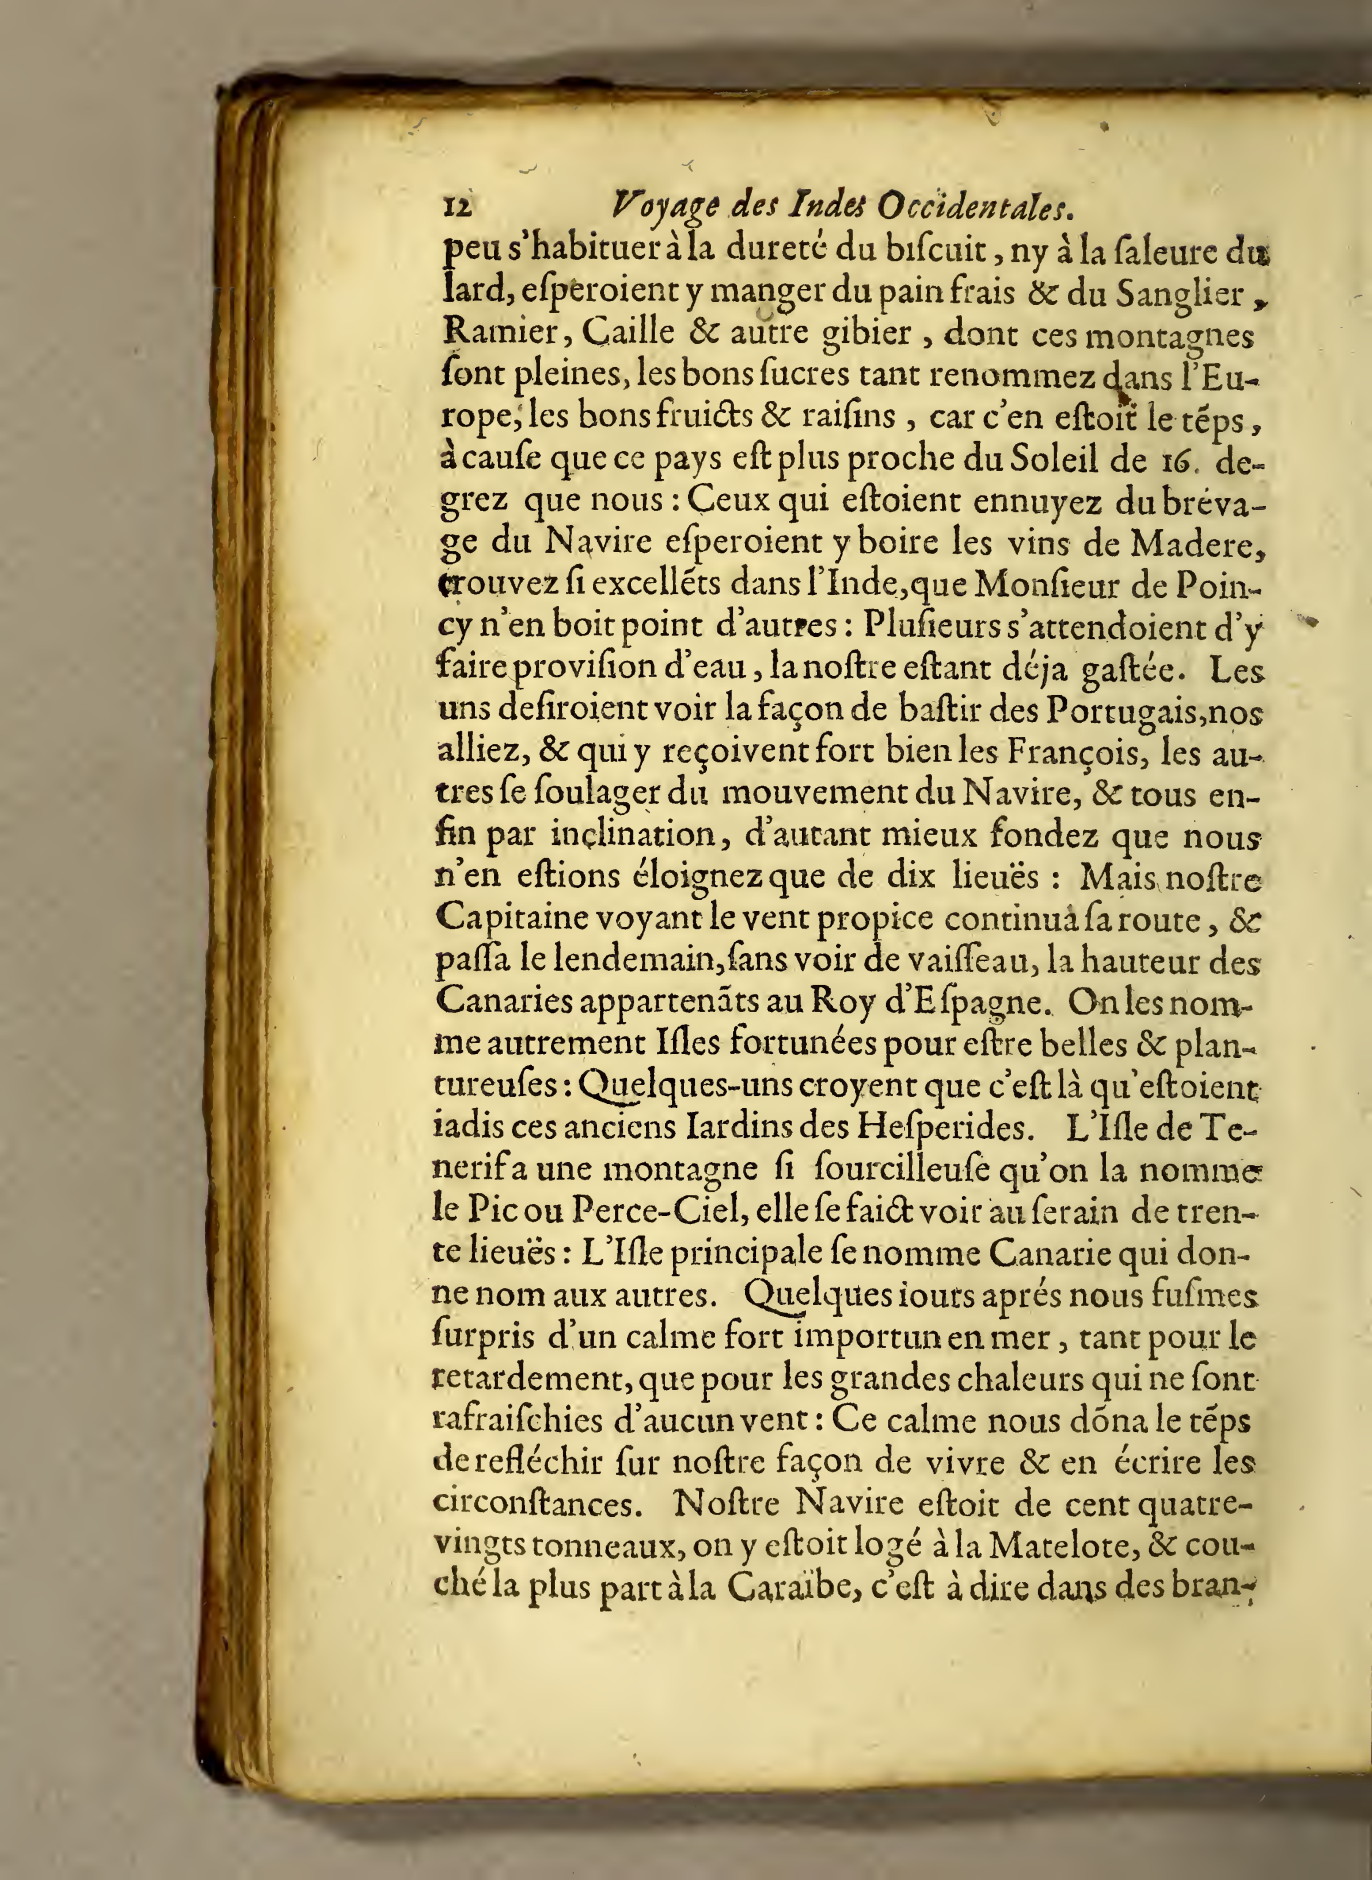 12 Voyage des Indes Occidentales.
peu s'habituer à la dureté du biſcuit, ny à la ſaleure du
lard, eſperoient y manger du pain frais & du Sanglier,
Ramier, Caille & autre gibier, dont ces montagnes
ſont pleines, les bons ſucres tant renommez dans l'Eu-
rope, les bons fruicts & raiſins, car c'en eſtoit le tẽps,
à cauſe que ce pays eſt plus proche du Soleil de 16. de-
grez que nous : Ceux qui eſtoient ennuyez du bréva-
ge du Navire eſperoient y boire les vins de Madere,
trouvez ſi excellẽts dans l'Inde, que Monſieur de Poin-
cy n'en boit point d'autres : Pluſieurs s'attendoient d'y
faire proviſion d'eau, la noſtre eſtant déja gaſtée. Les
uns deſiroient voir la façon de baſtir des Portugais, nos
alliez, & qui y reçoivent fort bien les François, les au-
tres ſe ſoulager du mouvement du Navire, & tous en-
fin par inclination, d'autant mieux fondez que nous
n'en eſtions éloignez que de dix lieuës : Mais noſtre
Capitaine voyant le vent propice continua ſa route, &
paſſa le lendemain, ſans voir de vaiſſeau, la hauteur des
Canaries appartenãts au Roy d'Eſpagne. On les nom-
me autrement Iſles fortunées pour eſtre belles & plan-
tureuſes : Quelques-uns croyent que c'eſt là qu'eſtoient
iadis ces anciens Iardins des Heſperides. L'Iſle de Te-
nerif a une montagne ſi ſourcilleuſe qu'on la nomme
le Pic ou Perce-Ciel, elle ſe faict voir au ſerain de tren-
te lieuës : L'Iſle principale ſe nomme Canarie qui don-
ne nom aux autres. Quelques iours aprés nous fuſmes
ſurpris d'un calme fort importun en mer, tant pour le
retardement, que pour les grandes chaleurs qui ne ſont
rafraiſchies d'aucun vent : Ce calme nous dõna le tẽps
de refléchir ſur noſtre façon de vivre & en écrire les
circonſtances. Noſtre Navire eſtoit de cent quatre-
vingts tonneaux, on y eſtoit logé à la Matelote, & cou-
ché la plus part à la Caraïbe, c'eſt à dire dans des bran-